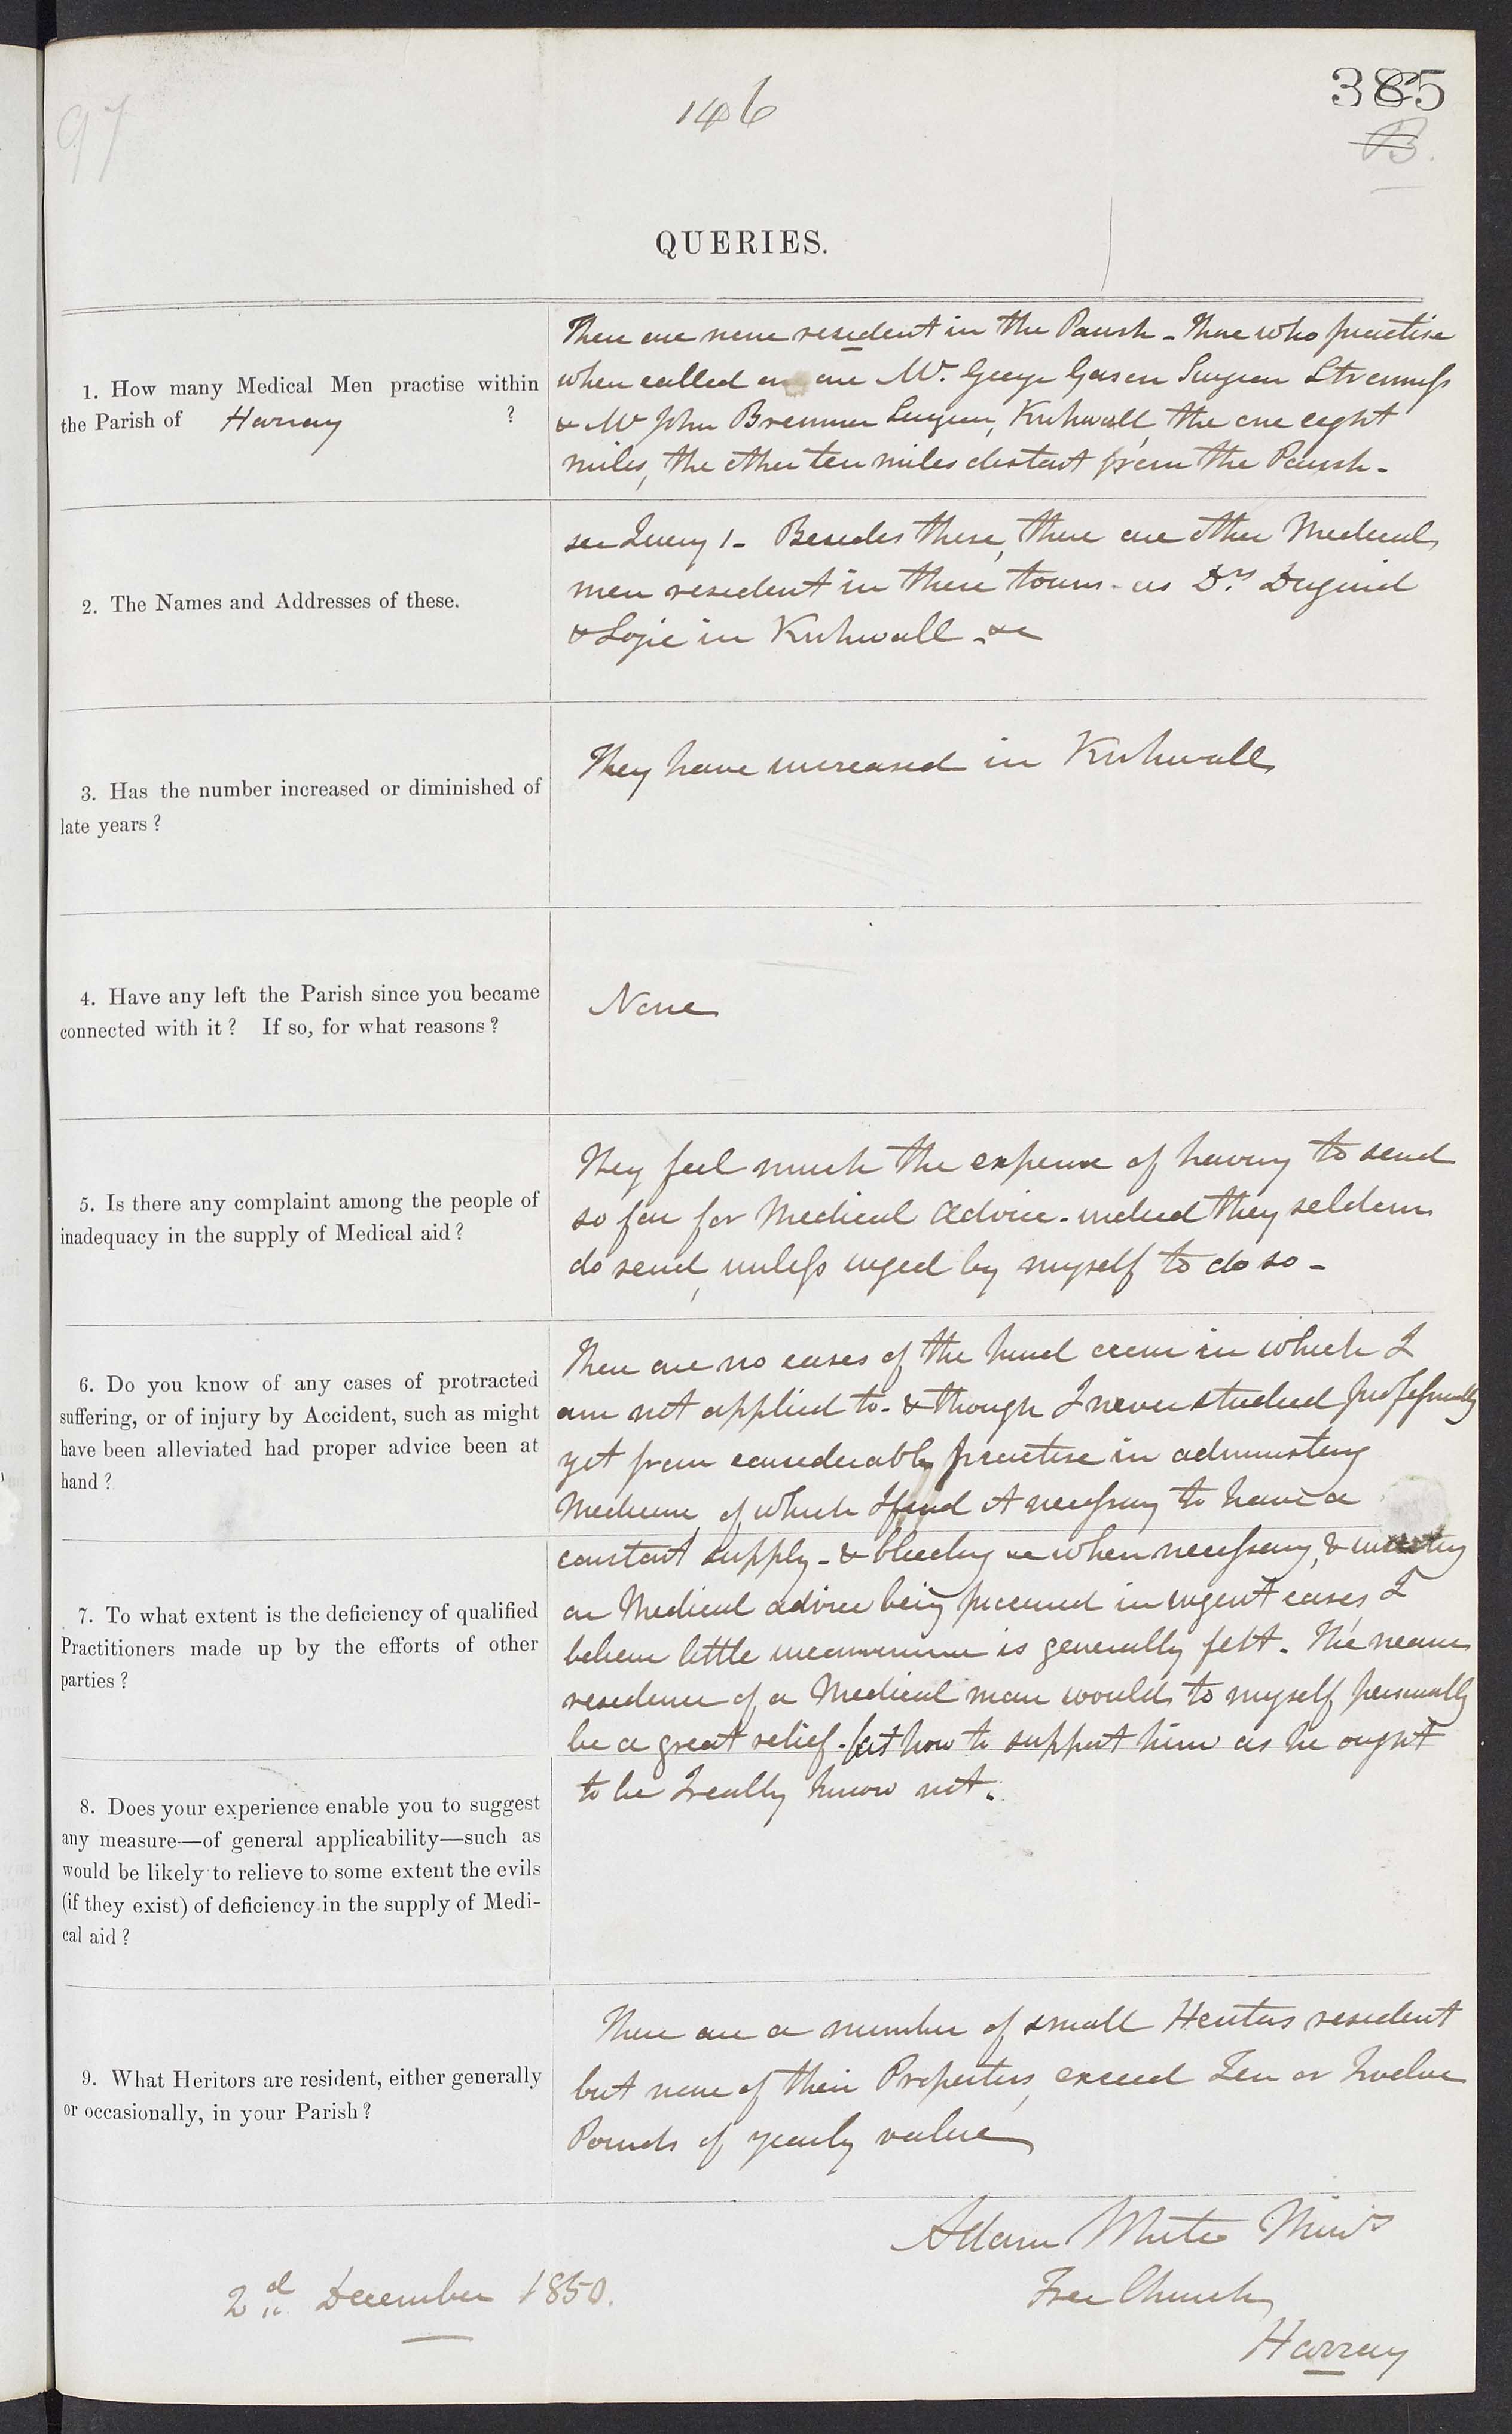 97
146
385
B.
QUERIES.
1. How many Medical Men practise within
the Parish of Harray ?
There are none resident in the Parish - Those who practise
when called on are Mr. George Garson Surgeon Stromness
& Mr John Bremner Surgeon, Kirkwall, the one eight
miles, the other ten miles distant from the Parish -
2. The Names and Addresses of these.
see Query 1 - Besides these, there are other Medical
men resident in these towns - as Drs. Duguid
& Logie in Kirkwall - &c
3. Has the number increased or diminished of
late years ?
They have increased in Kirkwall
4. Have any left the Parish since you became
connected with it ? If so, for what reasons ?
None
5. Is there any complaint among the people of
inadequacy in the supply of Medical aid ?
They feel much the expense of having to send
so far for Medical Advice - indeed they seldom
do send, unless urged by myself to do so -
6. Do you know of any cases of protracted
suffering, or of injury by Accident, such as might
have been alleviated had proper advice been at
hand ?
There are no cases of the kind occur in which I
am not applied to - & though I never studied professionally
yet from considerable practise in administering
Medicine, of which I find it necessary to have a
constant supply - & bleeding &c when necessary, &
on Medical advice being procured in urgent cases, I
believe little inconvenience is generally felt. The nearer
residence of a Medical man would to myself personally
be a great relief - but how to support him as he ought
to be I really know not.
7. To what extent is the deficiency of qualified
Practitioners made up by the efforts of other
parties ?
8. Does your experience enable you to suggest
any measure—of general applicability—such as
would be likely to relieve to some extent the evils
(if they exist) of deficiency in the supply of Medi-
cal aid ?
9. What Heritors are resident, either generally
or occasionally, in your Parish ?
There are a number of small Heritors resident
but none of their Properties, exceed Ten or Twelve
Pounds of yearly value
Adam White Minr
Free Church
Harray
2d December 1850.